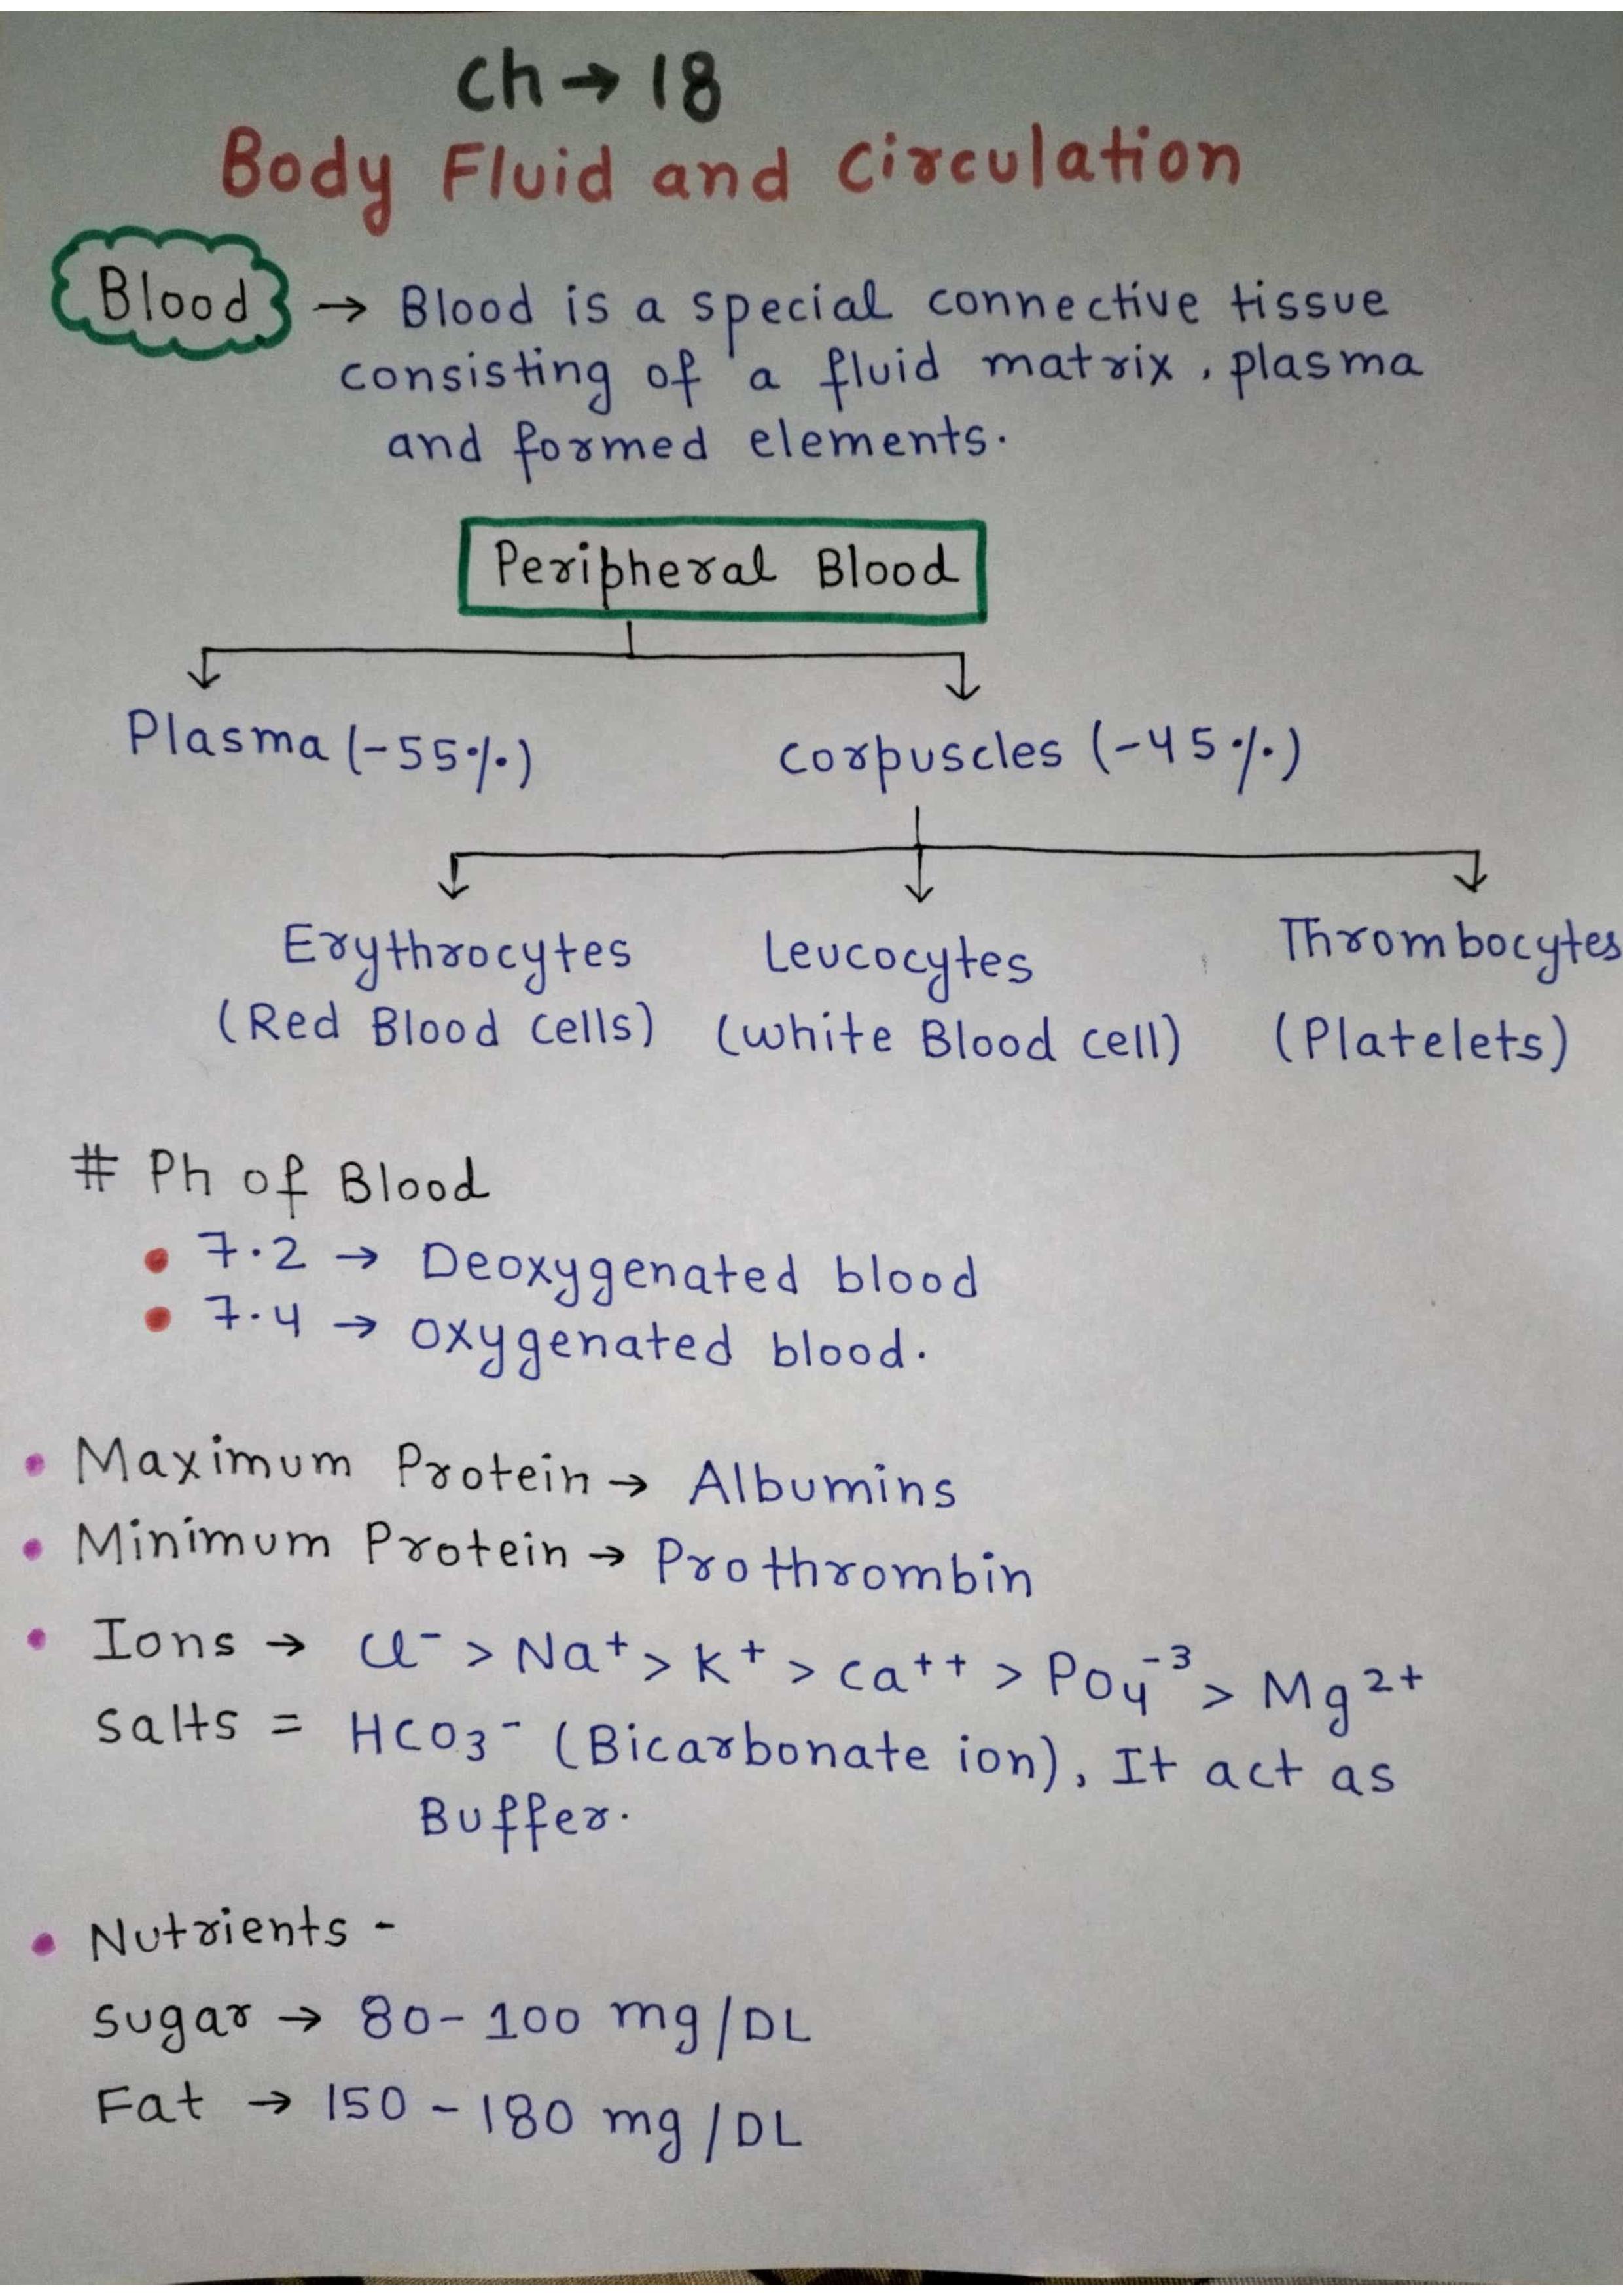 Ch → 18
Body Fluid and Circulation
Blood → Blood is a special connective tissue
consisting of a fluid matrix, plasma
and formed elements.
Peripheral Blood
Plasma (-55%) Corpuscles (-45%)
Erythrocytes Leucocytes Thrombocytes
(Red Blood cells) (white Blood cell) (Platelets)
# Ph of Blood
• 7.2 → Deoxygenated blood
• 7.4 → Oxygenated blood.
• Maximum Protein → Albumins
• Minimum Protein → Prothrombin
• Ions → Cl⁻ > Na⁺ > K⁺ > Ca⁺⁺ > PO₄⁻³ > Mg²⁺
Salts = HCO₃⁻ (Bicarbonate ion), It act as
Buffer.
• Nutrients -
Sugar → 80-100 mg/DL
Fat → 150-180 mg/DL